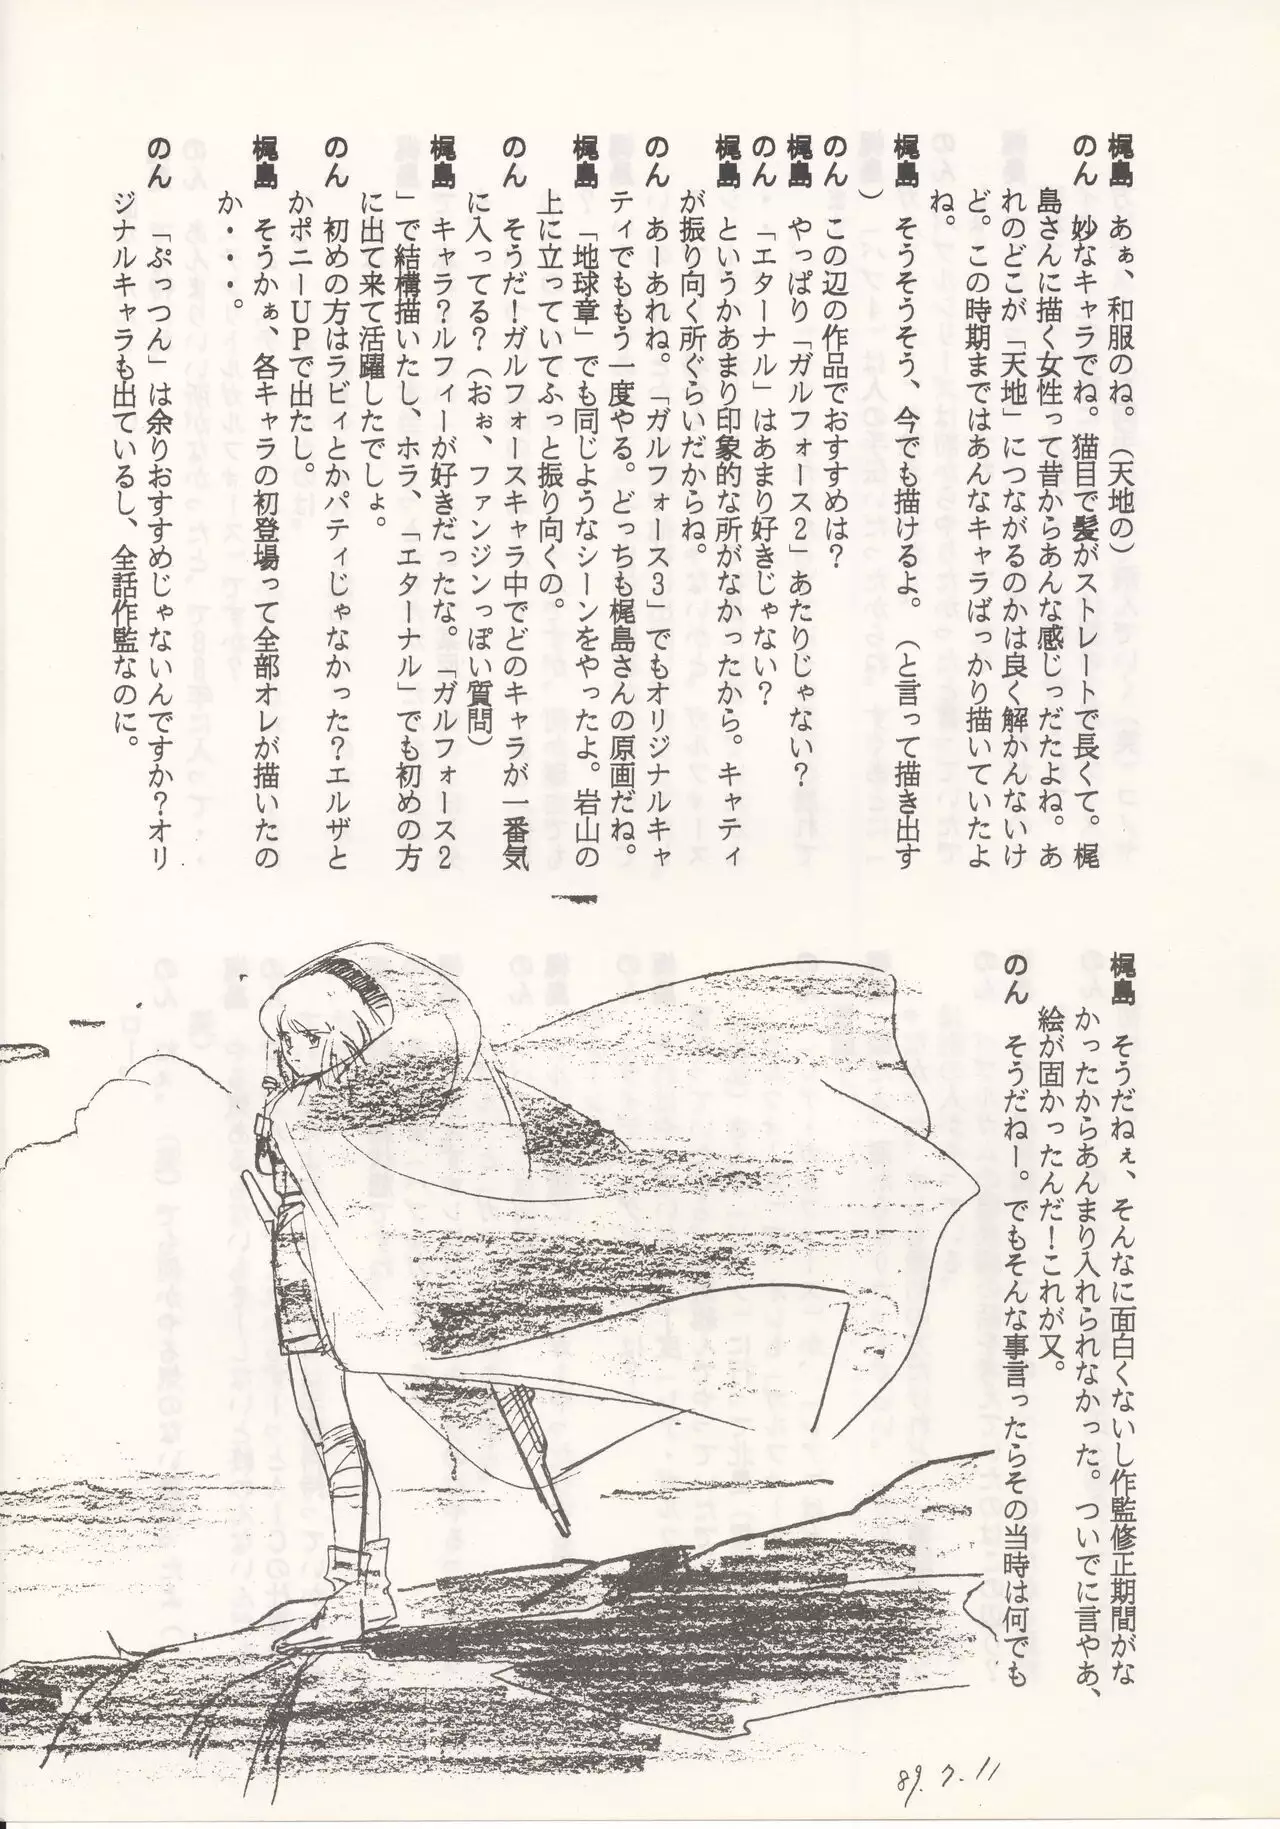 梶島　あぁ、和服のね。（天地の）
のん　妙なキャラでね。猫目で髪がストレートで長くて。梶
島さんに描く女性って昔からあんな感じっだたよね。あ
れのどこが「天地」につながるのかは良く解かんないけ
ど。この時期まではあんなキャラばっかり描いていたよ
ね。
梶島　そうそうそう、今でも描けるよ。（と言って描き出す
）
のん　この辺の作品でおすすめは？
梶島　やっぱり「ガルフォース２」あたりじゃない？
のん　「エターナル」はあまり好きじゃない？
梶島　というかあまり印象的な所がなかったから。キャティ
が振り向く所ぐらいだからね。
のん　あーあれね。「ガルフォース３」でもオリジナルキャ
ティでももう一度やる。どっちも梶島さんの原画だね。
梶島　「地球章」でも同じようなシーンをやったよ。岩山の
上に立っていてふっと振り向くの。
のん　そうだ！ガルフォースキャラ中でどのキャラが一番気
に入ってる？（おぉ、ファンジンっぽい質問）
梶島　キャラ？ルフィーが好きだったな。「ガルフォース２
」で結構描いたし、ホラ、「エターナル」でも初めの方
に出て来て活躍したでしょ。
のん　初めの方はラビィとかパティじゃなかった？エルザと
かポニーＵＰで出たし。
梶島　そうかぁ、各キャラの初登場って全部オレが描いたの
か・・・。
のん　「ぷっつん」は余りおすすめじゃないんですか？オリ
ジナルキャラも出ているし、全話作監なのに。
梶島　そうだねぇ、そんなに面白くないし作監修正期間がな
かったからあんまり入れられなかった。ついでに言やあ、
絵が固かったんだ！これが又。
のん　そうだねー。でもそんな事言ったらその当時は何でも
89.7.11